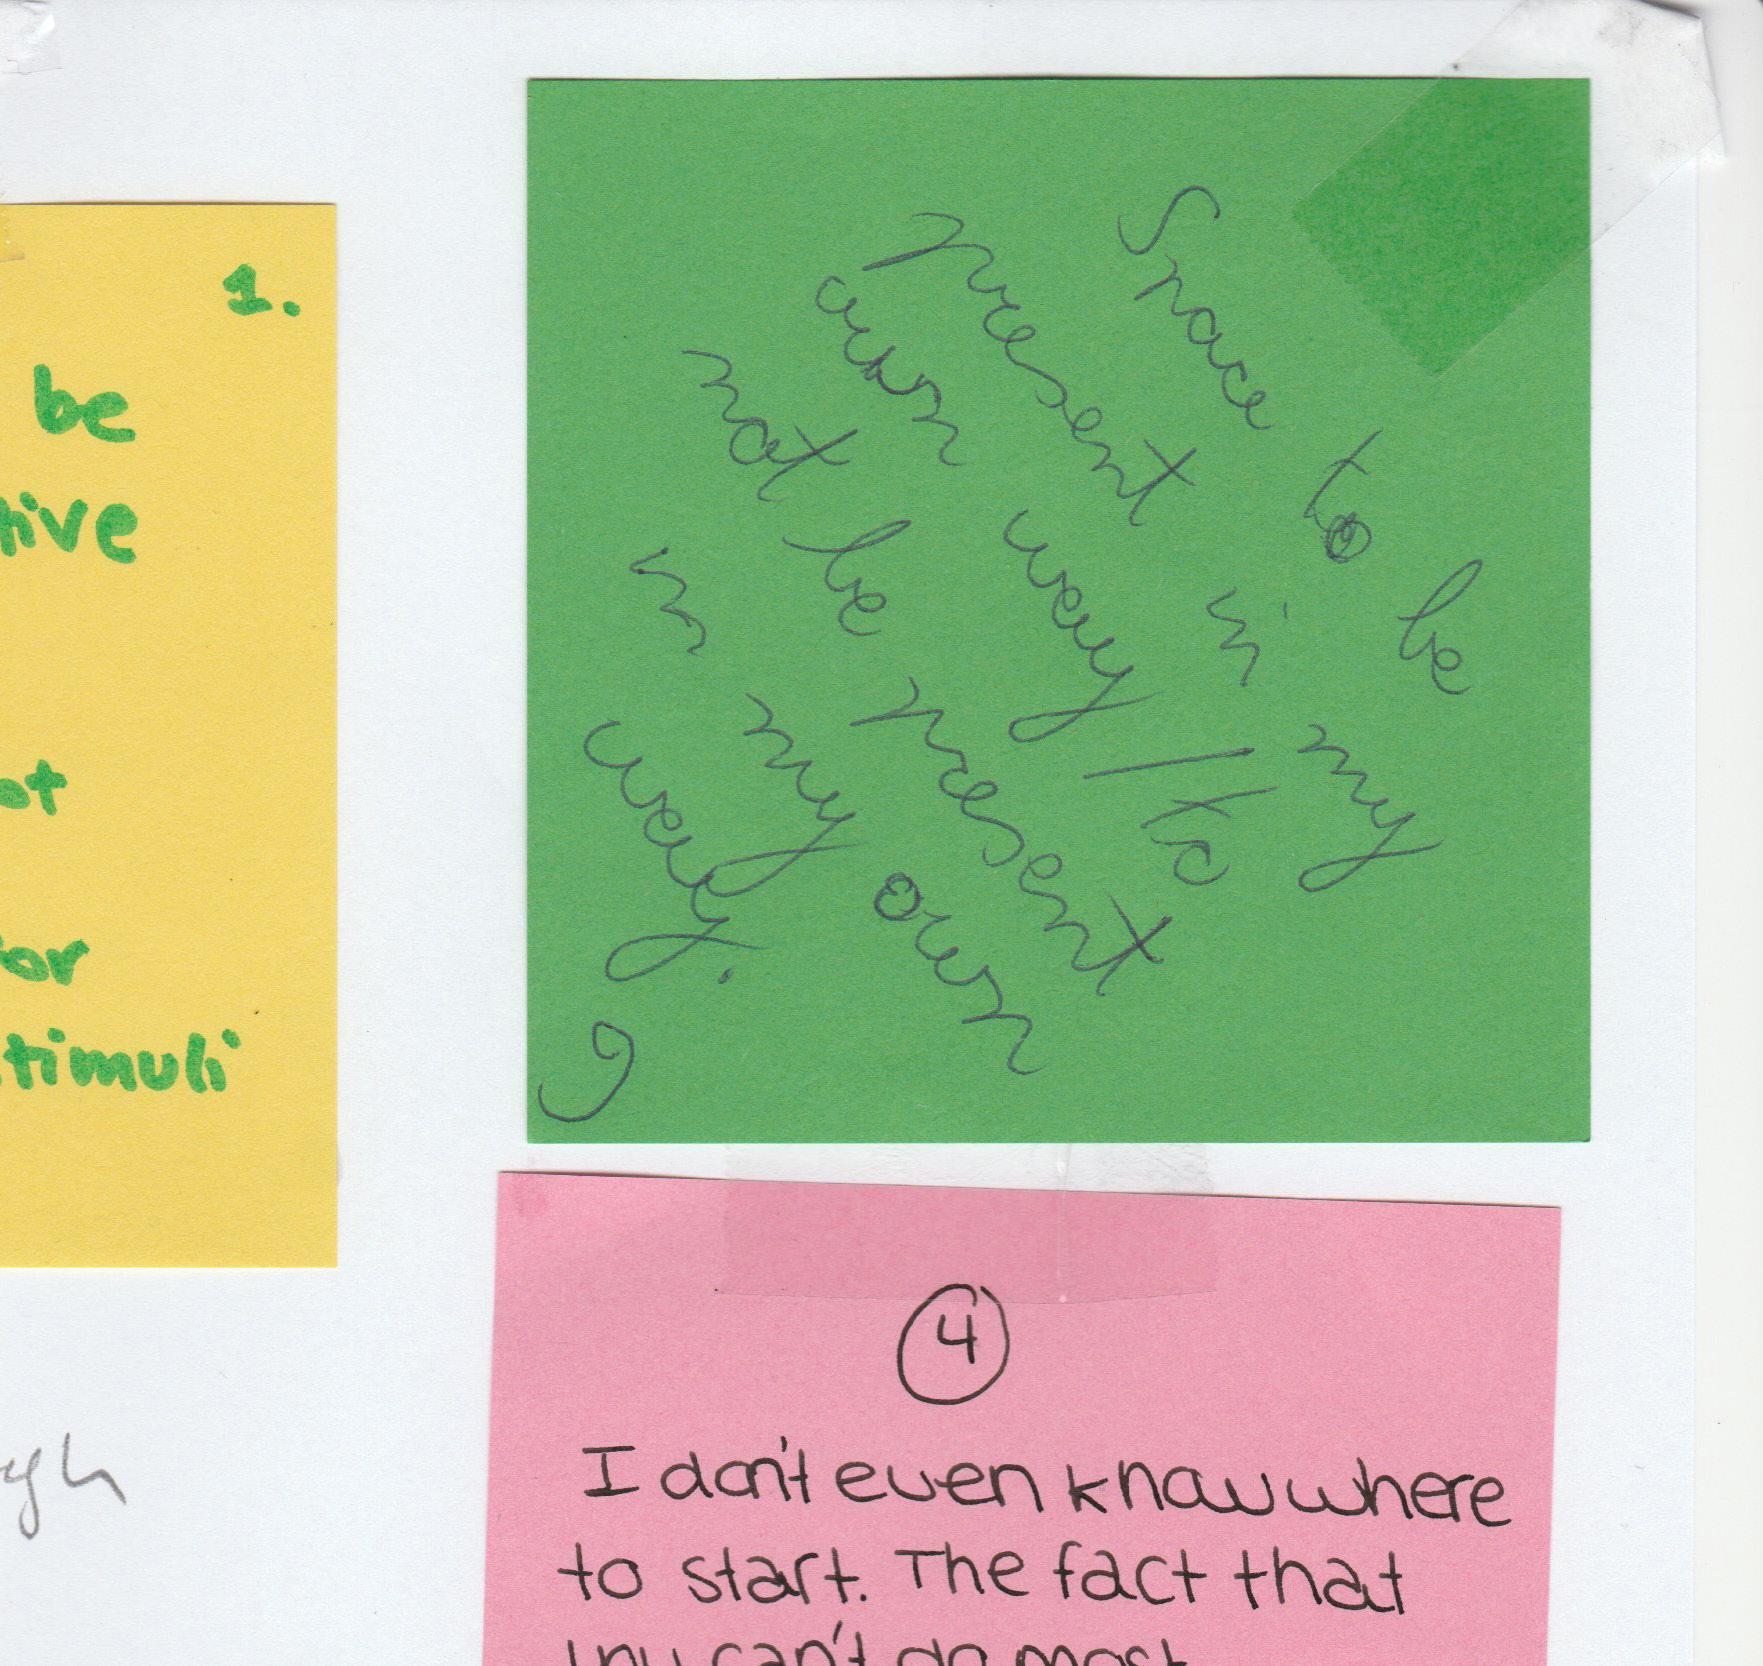 1.
be
ot
or
timuli
Space to be
present in my
own way / to
not be present
in my own
way.
4
I don't even know where
to start. The fact that
you can't do most